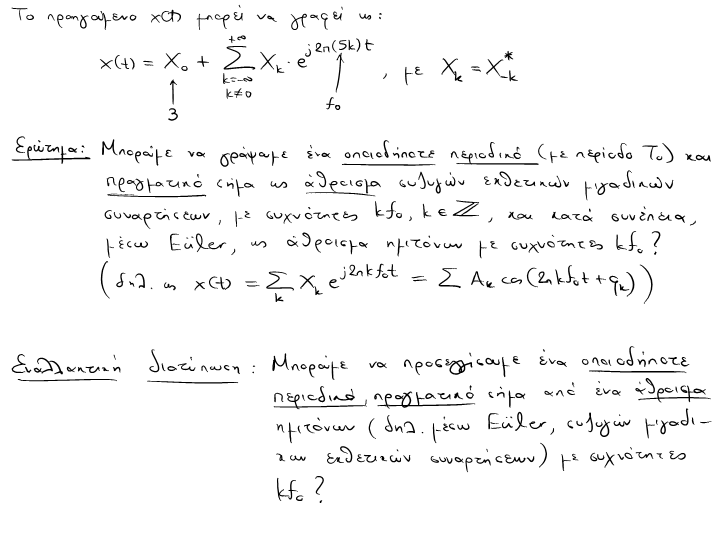 Το προηγούμενο x(t) μπορεί να γραφεί ως:
x(t) = X₀ + Σ_{k=-∞, k≠0}^{+∞} X_k · e^{j2π(5k)t} , με X_k = X*_{-k}
3
f₀
Ερώτημα: Μπορούμε να γράψουμε ένα οποιοδήποτε περιοδικό (με περίοδο T₀) και
πραγματικό σήμα ως άθροισμα συζυγών εκθετικών μιγαδικών
συναρτήσεων, με συχνότητες kf₀, k ∈ ℤ, και κατά συνέπεια,
μέσω Eüler, ως άθροισμα ημιτόνων με συχνότητες kf₀?
(δηλ. ως x(t) = Σ_k X_k e^{j2πkf₀t} = Σ A_k cos(2πkf₀t + φ_k))
Εναλλακτική διατύπωση: Μπορούμε να προσεγγίσουμε ένα οποιοδήποτε
περιοδικό, πραγματικό σήμα από ένα άθροισμα
ημιτόνων (δηλ. μέσω Eüler, συζυγών μιγαδι-
κων εκθετικών συναρτήσεων) με συχνότητες
kf₀?